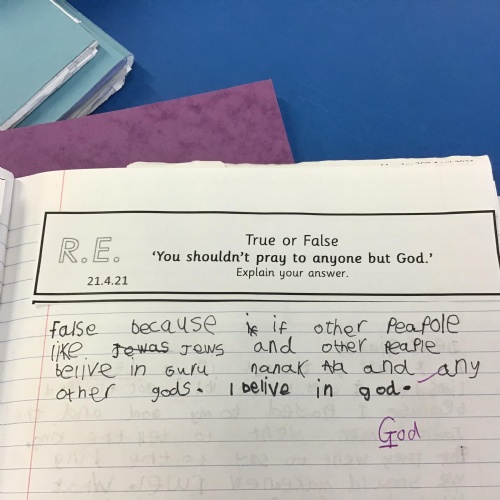 R.E.
21.4.21
True or False
'You shouldn't pray to anyone but God.'
Explain your answer.
false because if other Peapole
like Jewas Jews and other Peaple
belive in Guru nanak and any
other gods. I belive in god.
God